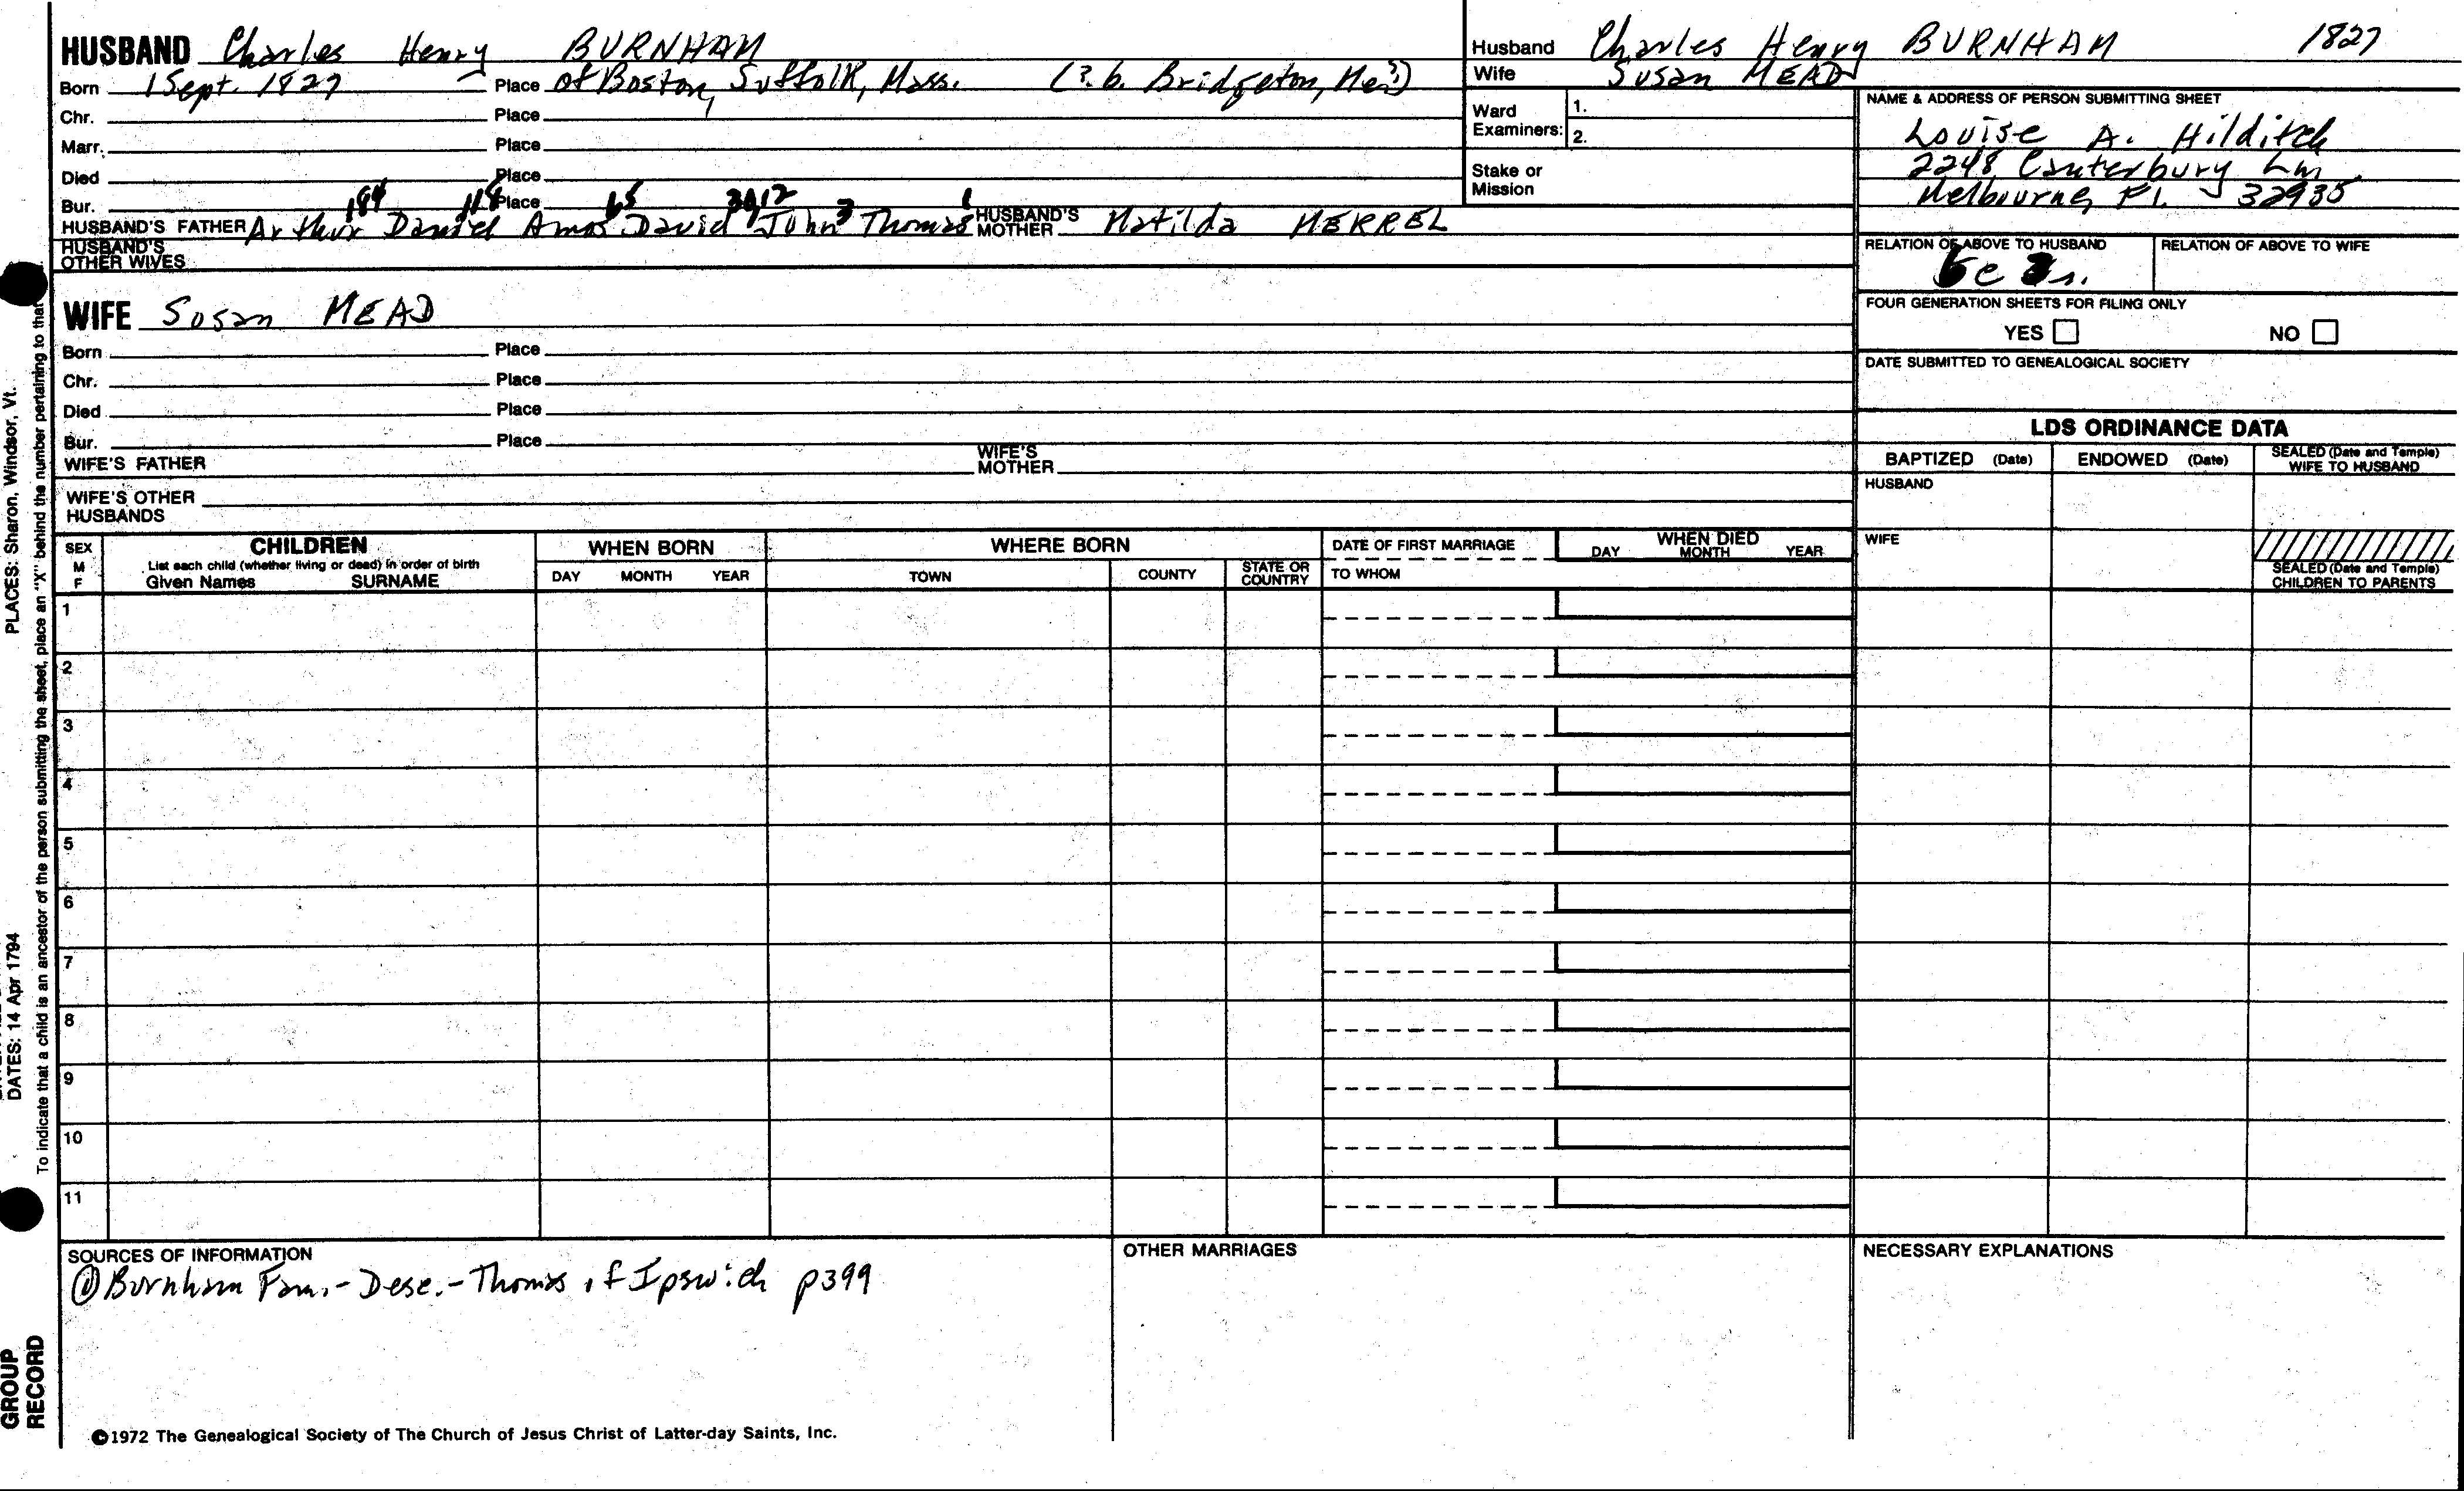 HUSBAND Charles Henry BURNHAM
Born 1 Sept. 1827 Place of Boston, Suffolk, Mass. (?. b. Bridgeton, Me?)
Chr. Place
Marr. Place
Died Place
Bur. Place
HUSBAND'S FATHER Arthur Daniel Amos David John Thomas HUSBAND'S MOTHER Matilda MERREL
HUSBAND'S OTHER WIVES
WIFE Susan MEAD
Born Place
Chr. Place
Died Place
Bur. Place
WIFE'S FATHER WIFE'S MOTHER
WIFE'S OTHER HUSBANDS
Husband Charles Henry BURNHAM 1827
Wife Susan MEAD
Ward Examiners: 1.
2.
Stake or Mission
NAME & ADDRESS OF PERSON SUBMITTING SHEET
Louise A. Hilditch
2248 Canterbury Ln
Melbourne, Fl. 32935
RELATION OF ABOVE TO HUSBAND RELATION OF ABOVE TO WIFE
FOUR GENERATION SHEETS FOR FILING ONLY
YES NO
DATE SUBMITTED TO GENEALOGICAL SOCIETY
LDS ORDINANCE DATA
BAPTIZED (Date) ENDOWED (Date) SEALED (Date and Temple) WIFE TO HUSBAND
HUSBAND
WIFE
SEALED (Date and Temple) CHILDREN TO PARENTS
SEX M F
CHILDREN
List each child (whether living or dead) in order of birth
Given Names SURNAME
WHEN BORN
DAY MONTH YEAR
WHERE BORN
TOWN COUNTY STATE OR COUNTRY
DATE OF FIRST MARRIAGE
TO WHOM
WHEN DIED
DAY MONTH YEAR
1
2
3
4
5
6
7
8
9
10
11
SOURCES OF INFORMATION
① Burnham Fam. - Desc. - Thomas of Ipswich p399
OTHER MARRIAGES
NECESSARY EXPLANATIONS
©1972 The Genealogical Society of The Church of Jesus Christ of Latter-day Saints, Inc.
PLACES: Sharon, Windsor, Vt.
DATES: 14 Apr 1794
To indicate that a child is an ancestor of the person submitting the sheet, place an "X" behind the number pertaining to that
GROUP
RECORD